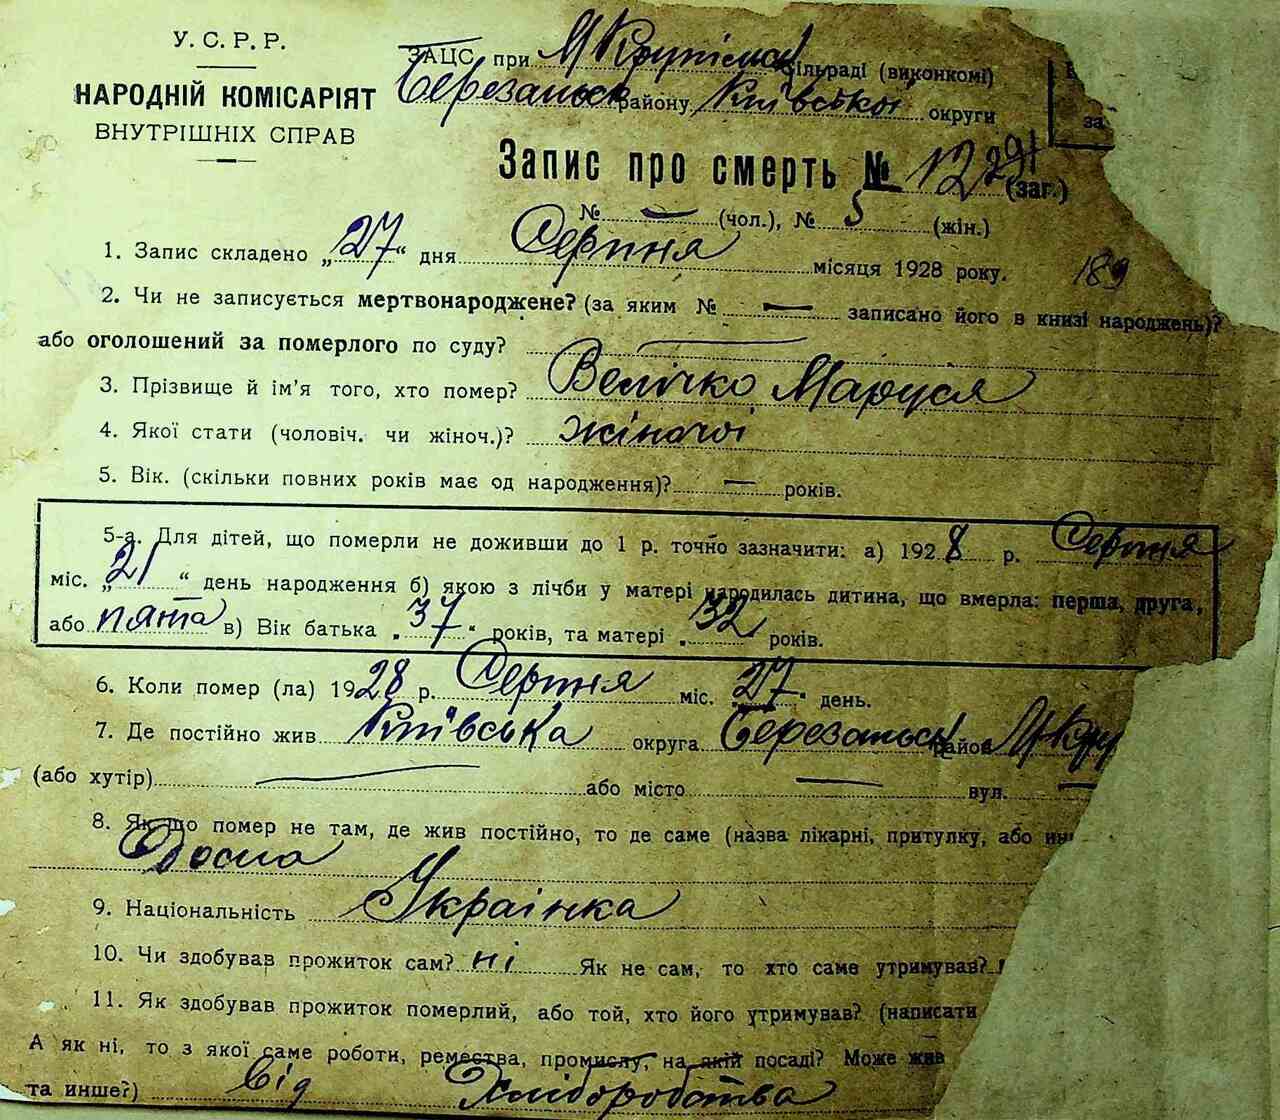 У. С. Р. Р.
НАРОДНІЙ КОМІСАРІЯТ
ВНУТРІШНІХ СПРАВ
ЗАЦС при М Крупіскій сільраді (виконкомі)
Березанськ району Київської округи
за
Запис про смерть № 12 (заг.)
№ — (чол.), № 5 (жін.)
1. Запис складено „27“ дня Серпня місяця 1928 року.
189
2. Чи не записується мертвонароджене? (за яким № — записано його в книзі народжень)?
або оголошений за померлого по суду? —
3. Прізвище й ім'я того, хто помер? Велічко Маруся
4. Якої стати (чоловіч. чи жіноч.)? жіночоі
5. Вік. (скільки повних років має од народження)? — років.
5-а. Для дітей, що померли не доживши до 1 р. точно зазначити: а) 1928 р. Серпня
міс. „21“ день народження б) якою з лічби у матері народилась дитина, що вмерла: перша, друга,
або пята в) Вік батька „37“ років, та матері „32“ років.
6. Коли помер (ла) 1928 р. Серпня міс. „27“ день.
7. Де постійно жив Київська округа Березанськ район М Кру
(або хутір) — або місто — вул. —
8. Як що помер не там, де жив постійно, то де саме (назва лікарні, притулку, або ин
Дома
9. Національність Украінка
10. Чи здобував прожиток сам? ні Як не сам, то хто саме утримував?
11. Як здобував прожиток померлий, або той, хто його утримував? (написати
А як ні, то з якої саме роботи, ремества, промислу, на якій посаді? Може жив
та инше?) від Хліборобства